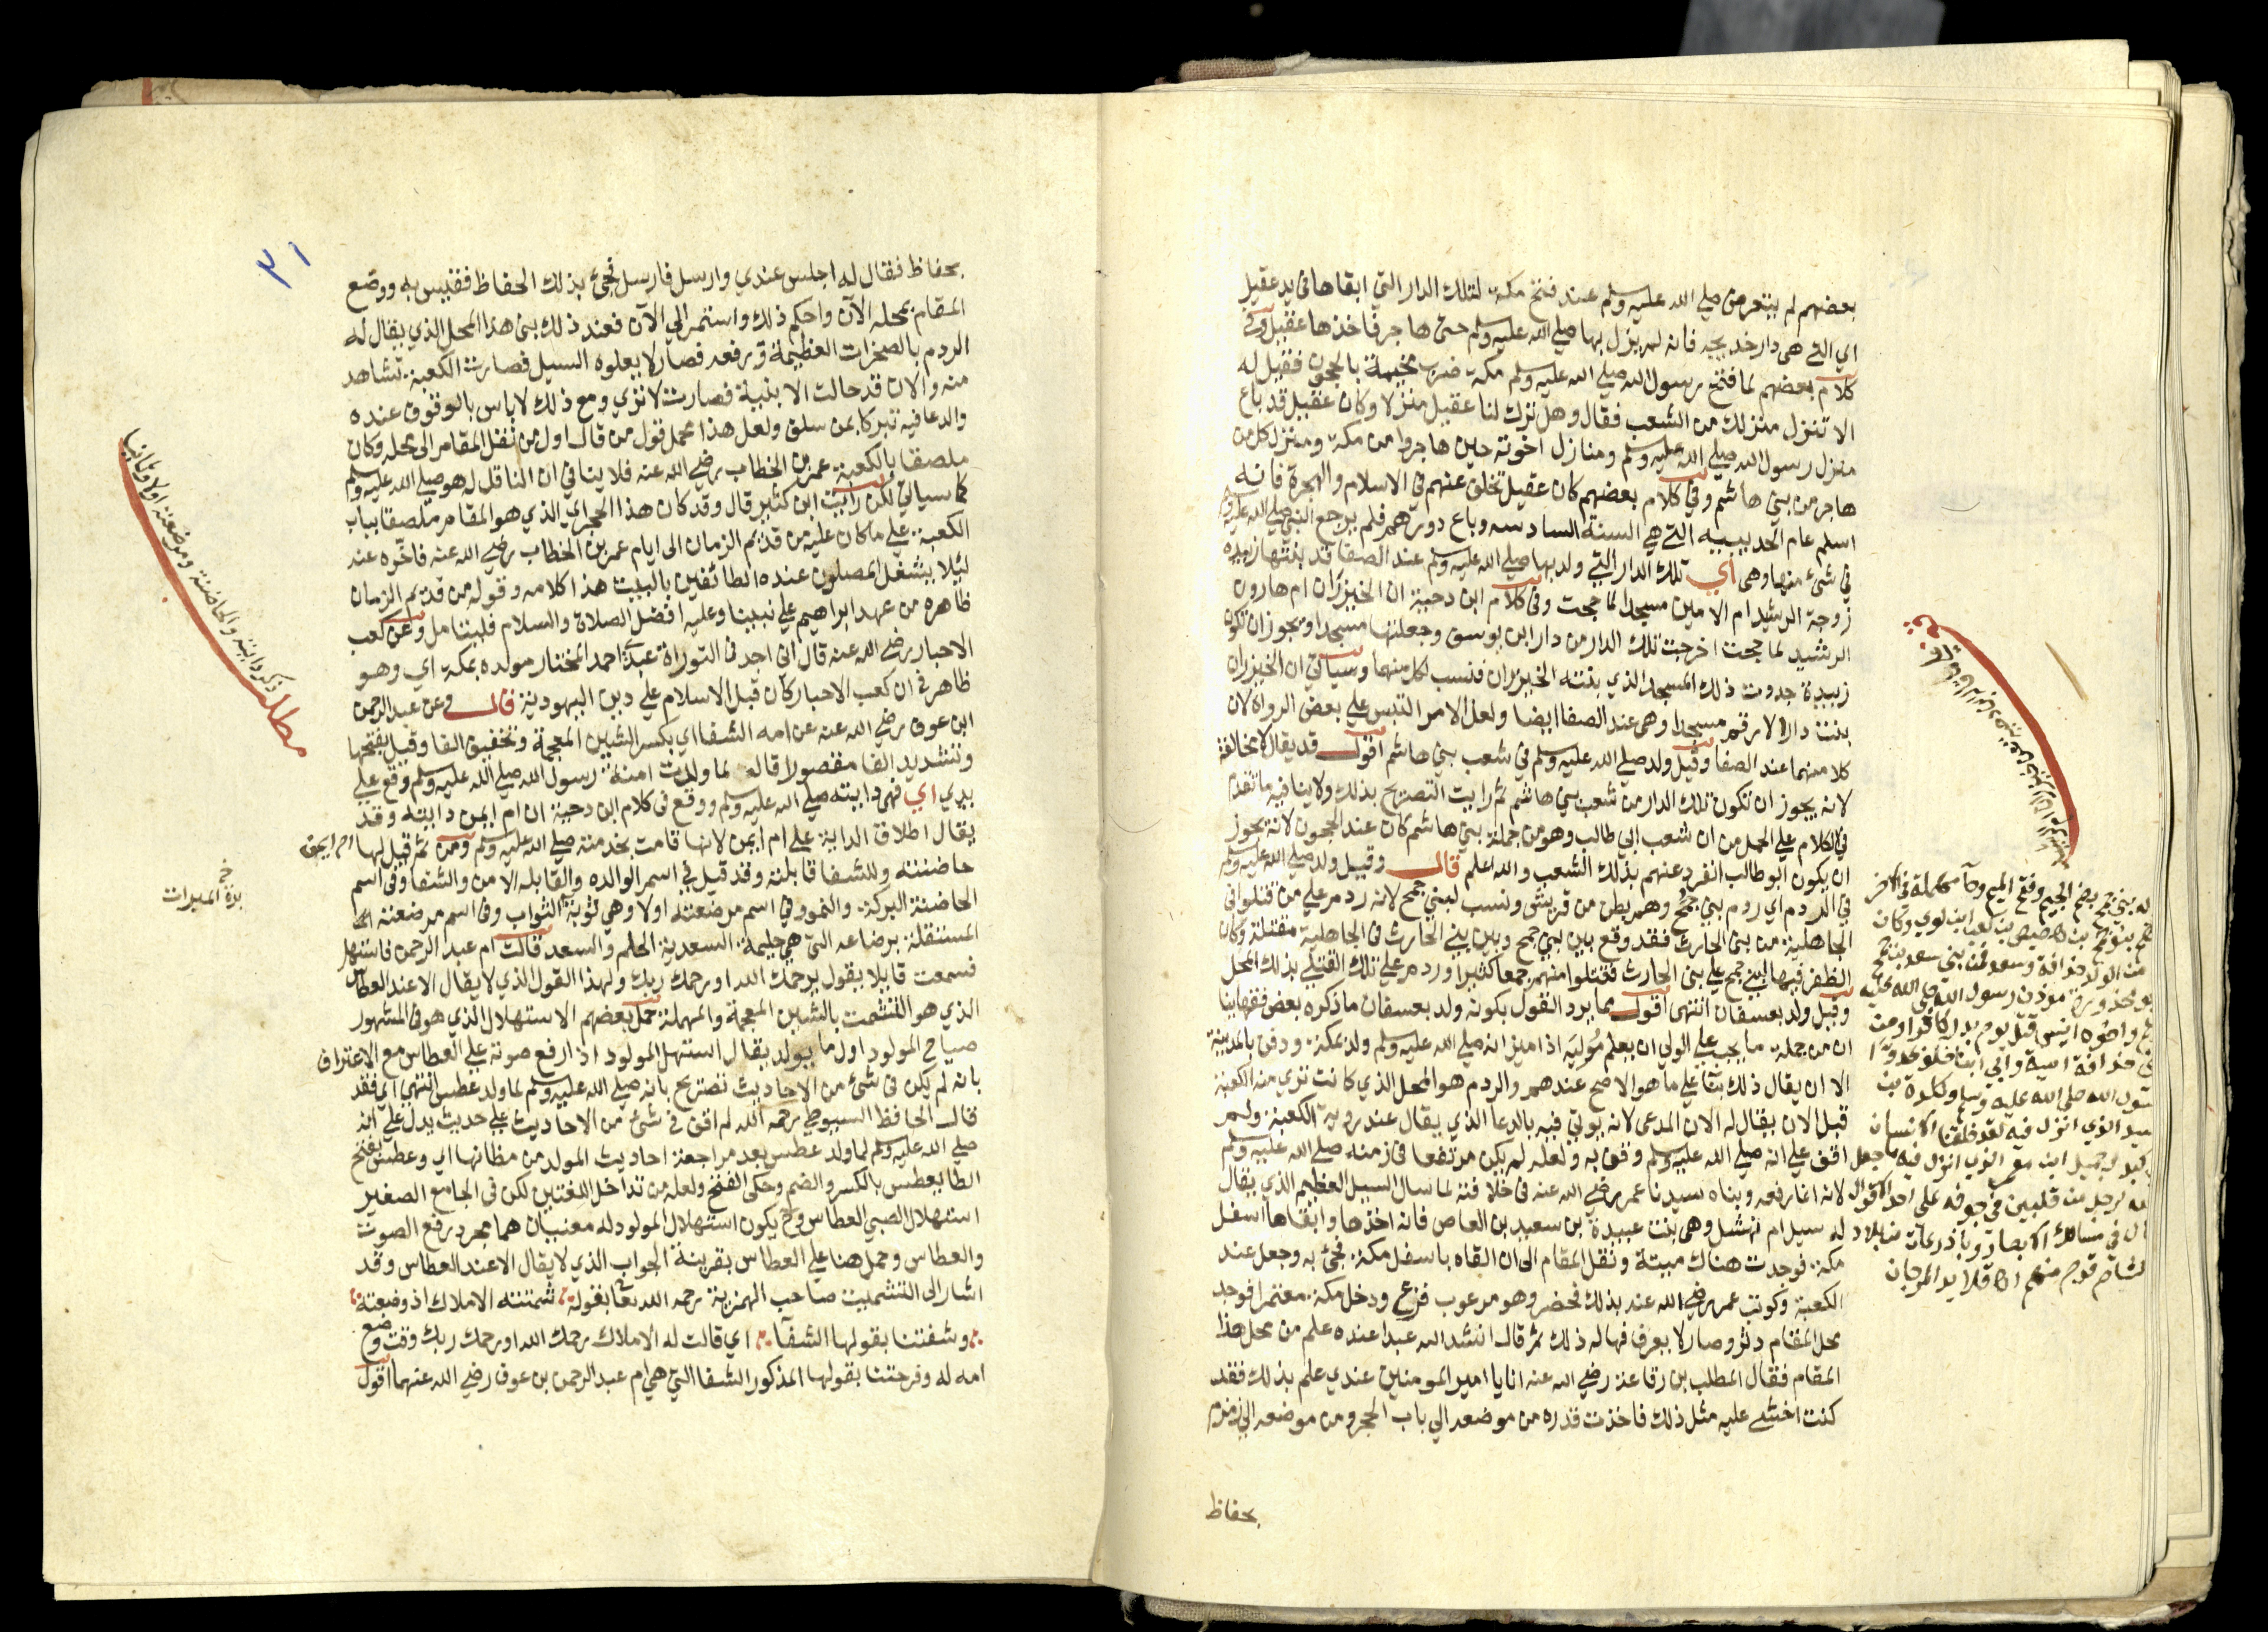 بعضهم لم يتعرض صلي الله عليه وسلم عند فتح مكة لتلك الدار التي ابقاها في يد عقيل
اي التي هي دار خديجه فانه لم يزل بها صلي الله عليه وسلم حتي هاجر فاخذها عقيل وفي
كلام بعضهم لما فتح رسول الله صلي الله عليه وسلم مكة ضرب مخيمة بالحجون فقيل له
الا تنزل منزلك من الشعب فقال وهل ترك لنا عقيل منزلا وكان عقيل قد باع
منزل رسول الله صلي الله عليه وسلم ومنازل اخوته حين هاجروا من مكة ومنزل كل من
هاجر من بني هاشم وفي كلام بعضهم كان عقيل تخلف عنهم في الاسلام والهجرة فانه
اسلم عام الحديبيه التي هي السنة السادسه وباع دورهم فلم يرجع النبي صلي الله عليه وسلم
في شئ منها وهي اي تلك الدار التي ولد بها صلي الله عليه وسلم عند الصفا قد بنتها زبيده
زوجة الرشيد ام الامين مسجدا لما حجت وفي كلام ابن دحية ان الخيزران ام هارون
الرشيد لما حجت اخرجت تلك الدار من دار ابن يوسف وجعلتها مسجدا ويجوز ان تكون
زبيدة جددت ذلك المسجد الذي بنته الخيزران فنسب لكل منهما وسياتي ان الخيزران
بنت دار الارقم مسجدا وهي عند الصفا ايضا ولعل الامر التبس علي بعض الرواة لان
كلا منهما عند الصفا وقيل ولد صلي الله عليه وسلم في شعب بني هاشم اقول قد يقال لا مخالفة
لانه يجوز ان تكون تلك الدار من شعب بني هاشم ثم رايت التصريح بذلك ولا ينافيه ما تقدم
في الكلام علي الحمل من ان شعب ابي طالب وهو من جملة بني هاشم كان عند الحجون لانه يجوز
ان يكون ابو طالب انفرد عنهم بذلك الشعب والله اعلم قال وقيل ولد صلي الله عليه وسلم
في الردم اي ردم بني جمح وهم بطن من قريش ونسب لبني جمح لانه ردم علي من قتلوا في
الجاهلية من بني الحارث فقد وقع بين بني جمح وبين بني الحارث في الجاهلية مقتلة وكان
الظفر فيها لبني جمح علي بني الحارث فقتلوا منهم جمعا كثيرا وردم علي تلك القتلي بذلك المحل
وقيل ولد بعسفان انتهي اقول مما يرد القول بكونه ولد بعسفان ما ذكره بعض فقهاينا
ان من جملة ما يجب علي الولي ان يعلم مُوليَه اذا ميز انه صلي الله عليه وسلم ولد بمكة ودفن بالمدينة
الا ان يقال ذلك بنا علي ما هو الاصح عندهم والردم هو المحل الذي كانت تري منه الكعبة
قبل الان يقال له الان المدعي لانه يوتي فيه بالدعا الذي يقال عند روية الكعبة ولم
اقف علي انه صلي الله عليه وسلم وقف به ولعله لم يكن مرتفعا في زمنه صلي الله عليه وسلم
لانه انما رفعه وبناه سيدنا عمر رضي الله عنه في خلافته لما سال السيل العظيم الذي يقال
له سيل ام نهشل وهي بنت عبيدة بن سعيد بن العاص فانه اخذها وابقاها اسفل
مكة فوجدت هناك ميتة ونقل المقام الي ان القاه باسفل مكة فجئ به وجعل عند
الكعبة وكوتب عمر رضي الله عنه بذلك فحضر وهو مرعوب فزع ودخل مكة معتمرا فوجد
محل المقام دثر وصار لا يعرف فهاله ذلك ثم قال انشد الله عبدا عنده علم من محل هذا
المقام فقال المطلب بن رفاعة رضي الله عنه انا يا امير المومنين عندي علم بذلك فقد
كنت اخشي عليه مثل ذلك فاخذت قدره من موضعه الي باب الحجر ومن موضعه الي زمزم
بحفاظ
بني جمح بضم الجيم وفتح الميم وحآ مهملة في الاخر
من الولد حذافة وسعد فمن بني سعد بن جمح
ابو محذورة موذن رسول الله صلي الله عليه
واخوه انيس قتل يوم بدر كافرا ومن
حذافة امية وابي ابنا خلف عدوا
رسول الله صلي الله عليه وسلم وكلدة بن
الذي انزل فيه لقد خلقنا الانسان
جميل ابن معمر الذي انزل فيه ما جعل
لرجل من قلبين في جوفه علي احد الاقوال
في مسالك الابصار وباذرعات من بلاد
الشام قوم منهم
٣١
بحفاظ فقال له اجلس عندي وارسل فارسل فجئ بذلك الحفاظ فقيس به ووضع
المقام بمحله الآن واحكم ذلك واستمر الي الآن فعند ذلك بني هذا المحل الذي يقال له
الردم بالصخرات العظيمة ورفعه فصار لا يعلوه السيل فصارت الكعبة تشاهد
منه والان قد حالت الابنية فصارت لا تري ومع ذلك لا باس بالوقوف عنده
والدعا فيه تبركا بمن سلف ولعل هذا محمل قول من قال اول من نقل المقام الي محله وكان
ملصقا بالكعبة عمر بن الخطاب رضي الله عنه فلا ينافي ان الناقل له هو صلي الله عليه وسلم
كما سياتي لكن رايت ابن كثير قال وقد كان هذا الحجر اي الذي هو المقام ملصقا بباب
الكعبة علي ما كان عليه من قديم الزمان الي ايام عمر بن الخطاب رضي الله عنه فاخّره عنه
ليلا يشغل المصلون عنده الطائفين بالبيت هذا كلامه وقوله من قديم الزمان
ظاهره من عهد ابراهيم علي نبينا وعليه افضل الصلاة والسلام فليتامل وعن كعب
الاحبار رضي الله عنه قال اني اجد في التوراة عبدي احمد المختار مولده بمكة اي وهو
ظاهر في ان كعب الاحبار كان قبل الاسلام علي دين اليهودية قال وعن عبد الرحمن
ابن عوف رضي الله عنه عن امه الشفا اي بكسر الشين المعجمة وتخفيف الفا وقيل بفتحها
وتشديد الفا مقصورا قالت لما ولدت امنة رسول الله صلي الله عليه وسلم وقع علي
يدي اي فهي دايته صلي الله عليه وسلم ووقع في كلام ابن دحية ان ام ايمن دايته وقد
يقال اطلاق الداية علي ام ايمن لانها قامت بخدمته صلي الله عليه وسلم ومن ثم قيل لها ام ايمن
حاضنته وللشفا قابلته وقد قيل في اسم الوالده والقابله الامن والشفا وفي اسم
الحاضنة البركة والنمو وفي اسم مرضعته اولا وهي ثويبة الثواب وفي اسم مرضعته
المستقلة برضاعه التي هي حليمة السعدية الحلم والسعد قالت ام عبد الرحمن فاستهل
فسمعت قايلا يقول يرحمك الله او رحمك ربك ولهذا القول الذي لا يقال الا عند العطاس
الذي هو التشميت بالشين المعجمة والمهملة حمل بعضهم الاستهلال الذي هو في المشهور
صياح المولود اول ما يولد يقال استهل المولود اذا رفع صوته علي العطاس مع الاعتراف
بانه لم يكن في شئ من الاحاديث تصريح بانه صلي الله عليه وسلم لما ولد عطس انتهي اي فقد
قال الحافظ السيوطي رحمه الله لم اقف في شئ من الاحاديث علي حديث يدل علي انه
صلي الله عليه وسلم لما ولد عطس بعد مراجعة احاديث المولد من مظانها اي وعطس بفتح
الطا يعطس بالكسر والضم وحكي الفتح ولعله من تداخل اللغتين لكن في الجامع الصغير
استهلال الصبي العطاس وح يكون استهلال المولود له معنيان هما مجرد رفع الصوت
والعطاس وحمل هنا علي العطاس بقرينة الجواب الذي لا يقال الا عند العطاس وقد
اشار الي التشميت صاحب الهمزية رحمه الله تعا بقوله شمتته الاملاك اذ وضعته
وشفتنا بقولها الشفآ اي قالت له الاملاك رحمك الله او رحمك ربك وقت وضع
امه له وفرحتنا بقولها المذكور الشفا التي هي ام عبد الرحمن بن عوف رضي الله عنهما اقول
مطلب ذكر دايته والحاضنة ومرضعته اولا وثانيا